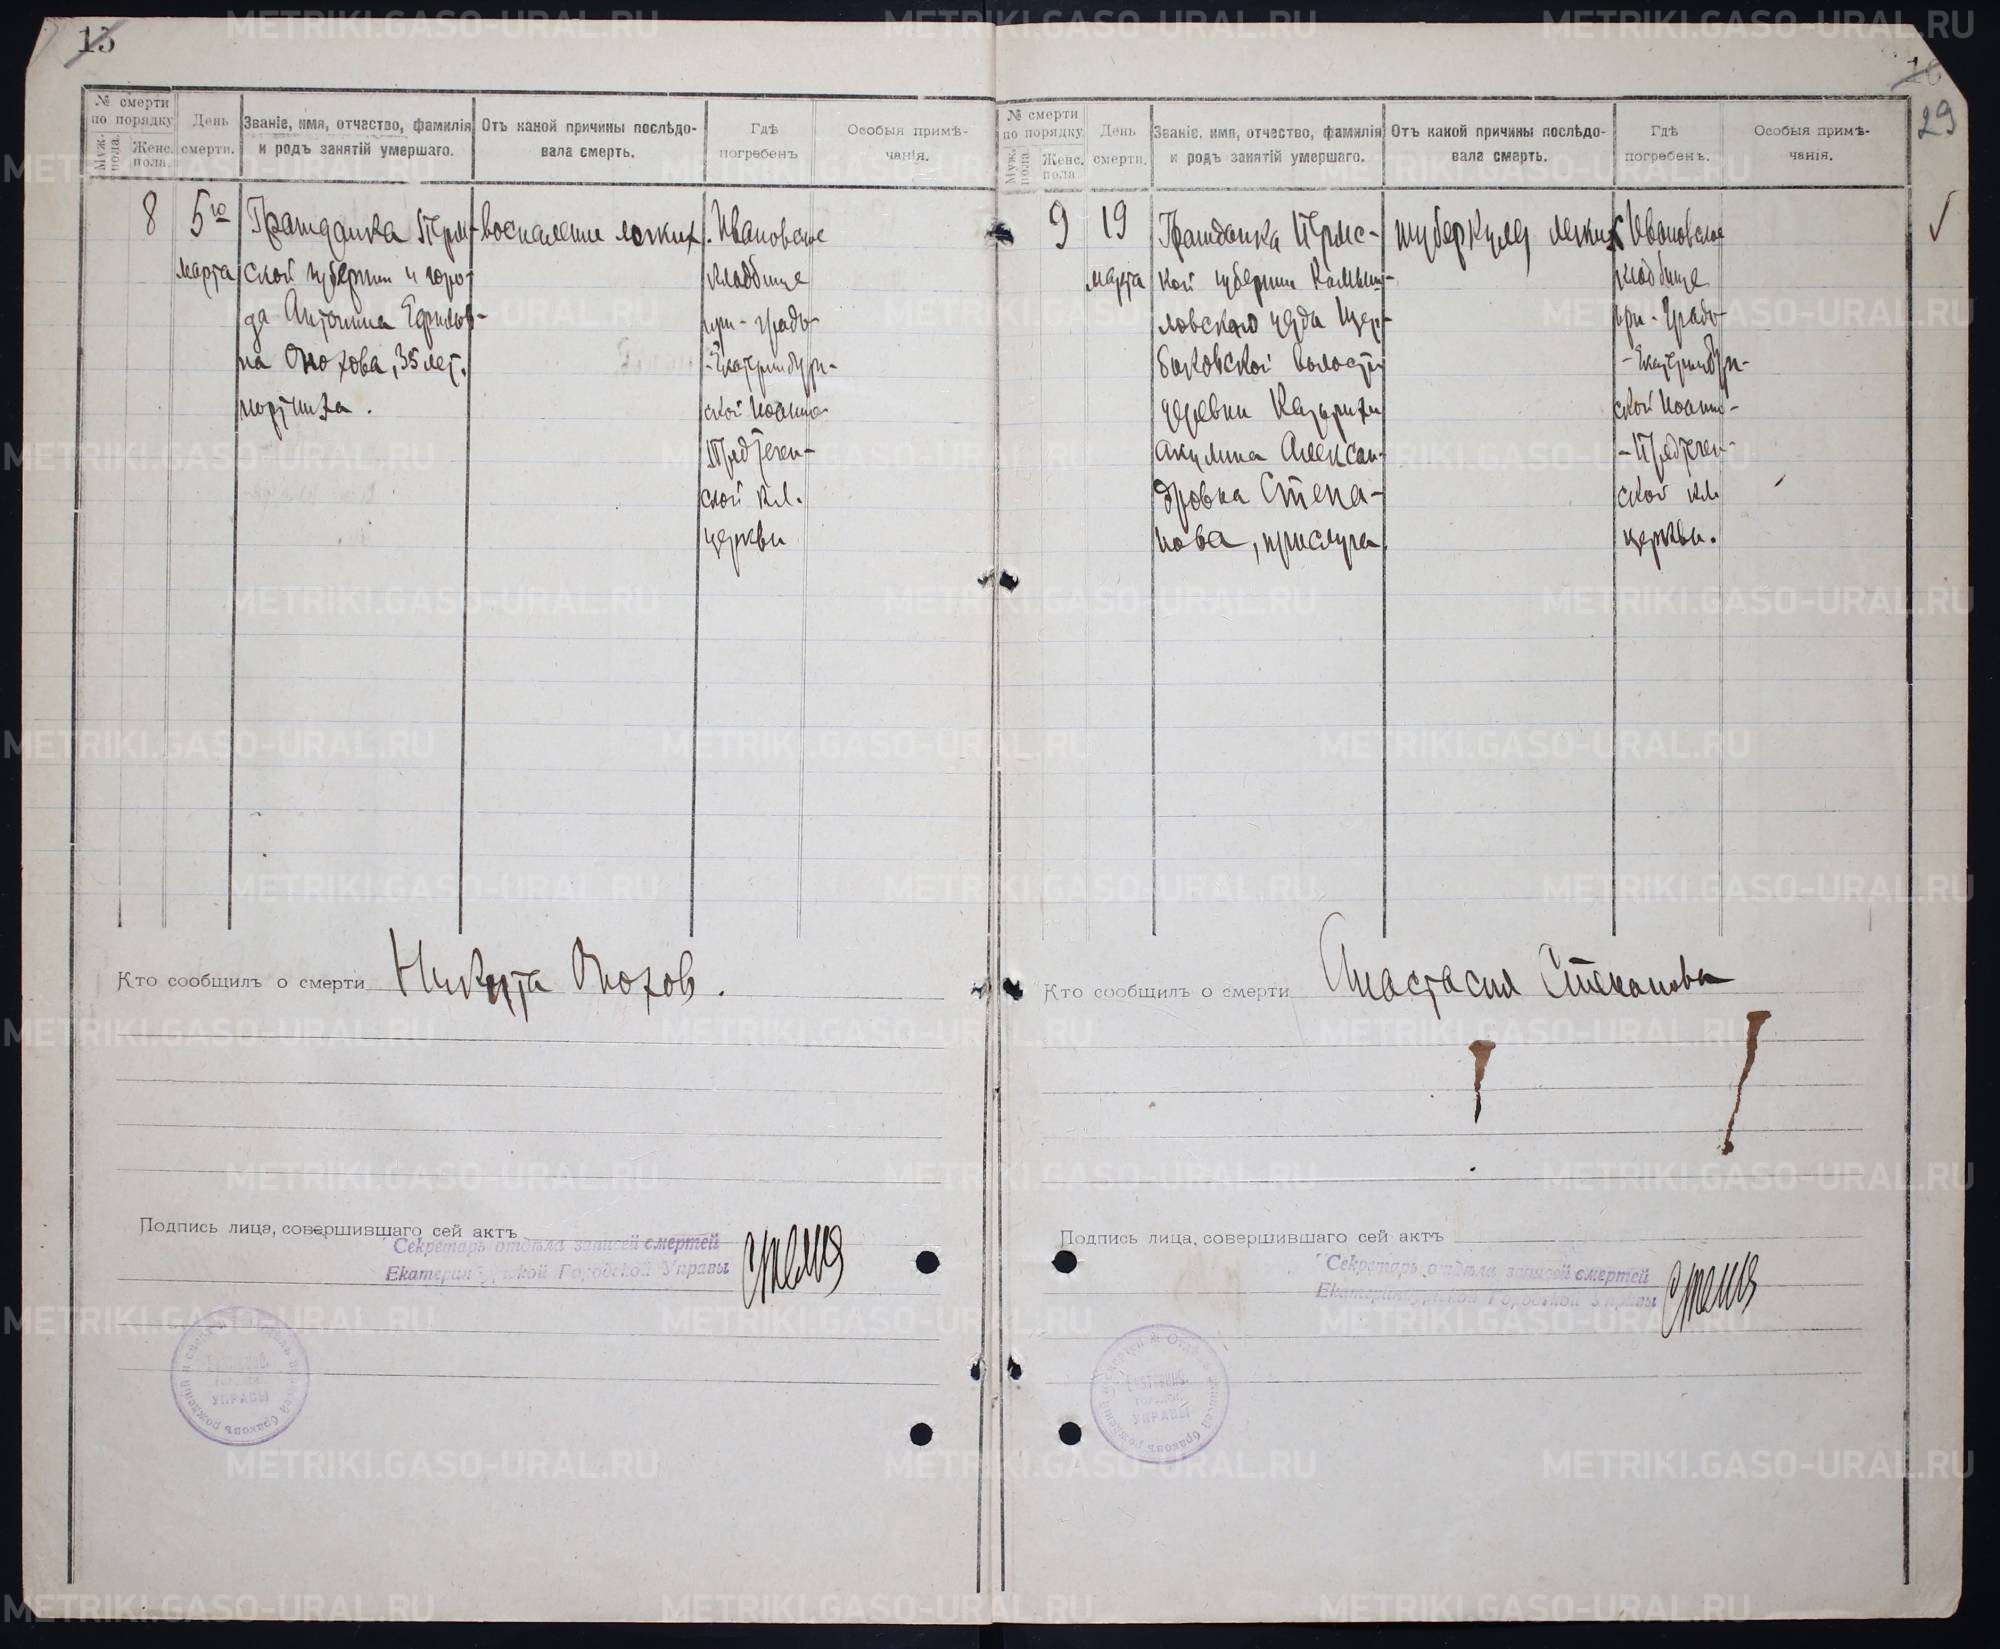 15
№ смерти по порядку
Муж. пола.
Женс. пола.
День смерти.
Званіе, имя, отчество, фамилія и родъ занятій умершаго.
Отъ какой причины послѣдовала смерть.
Гдѣ погребенъ
Особыя примѣчанія.
8
5го
марта
Гражданка Перм-
ской губернии и горо-
да Антонина
на Опохова, 35 лет.
портниха.
воспаление легких.
Ивановское
кладбище
при - градо-
-Екатеринбург-
ской Иоанно-
Предтечен-
ской кл.
церкви
Кто сообщилъ о смерти Никита Опохов.
Подпись лица, совершившаго сей актъ
Секретарь отдѣла записей смертей
Екатеринбургской Городской Управы
УПРАВЫ
29
№ смерти по порядку
Муж. пола
Женс. пола.
День смерти.
Званіе, имя, отчество, фамилія и родъ занятій умершаго.
Отъ какой причины послѣдовала смерть.
Гдѣ погребенъ.
Особыя примѣчанія.
9
19
марта
Гражданка Пермс-
кой губернии Камыш-
ловского уезда Щер-
баковской волости
деревни
Акулина Алексан-
дровна Степа-
нова, прислуга.
туберкулез легких
Ивановское
кладбище
при - Градо-
-Екатеринбург-
ской Иоанно-
-Предтечен-
ской кл.
церкви.
Кто сообщилъ о смерти Анастасия Степанова
Подпись лица, совершившаго сей актъ
Секретарь отдѣла записей смертей
Екатеринбургской Городской Управы
ЕКАТЕРИНБ.
УПРАВЫ
METRIKI.GASO-URAL.RU